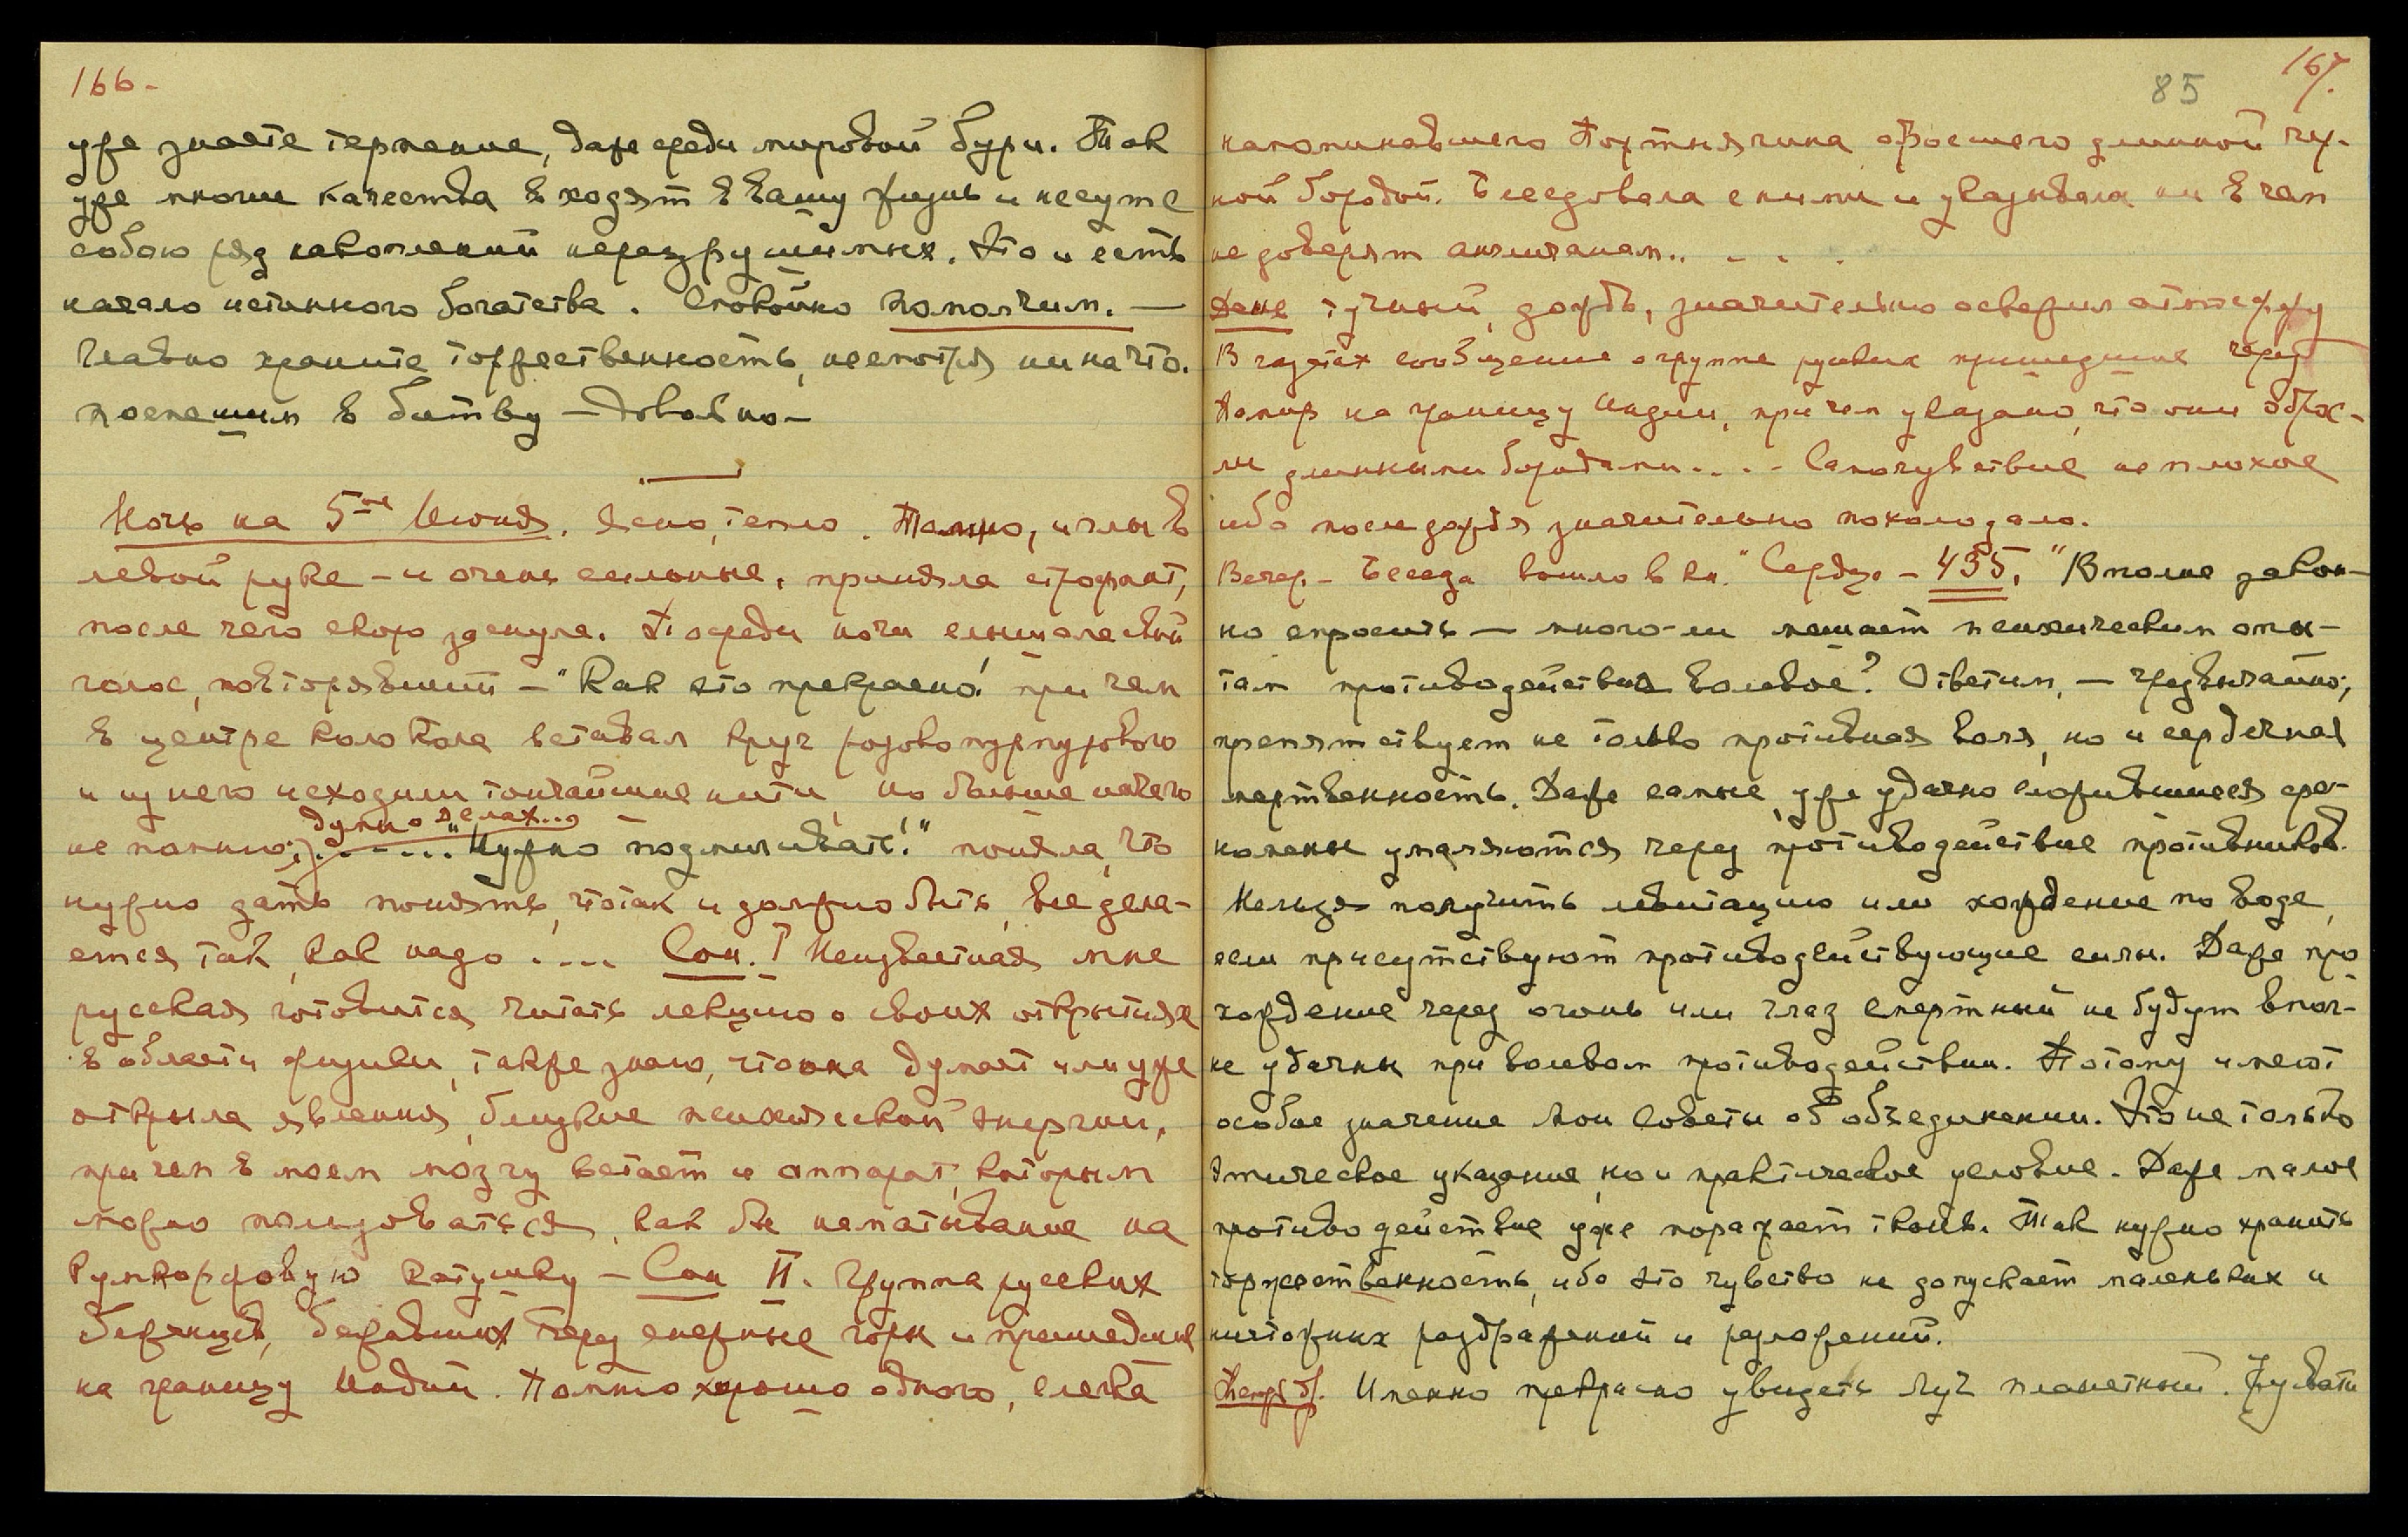 166-
уже знаете терпение, даже среди мировой бури. Так
уже многие качества входят в вашу жизнь и несут с
собою ряд накоплений неразрушимых. Это и есть
начало истинного богатства. Спокойно помолчим. —
Главное храните торжественность, несмотря ни на что.
поспешим в битву — Довольно —
Ночь на 5ое Июня. Ясно, тепло. Томно, иглы в
левой руке — и очень сильные, приняла строфант,
после чего скоро заснула. Посреди ночи слышала свой
голос, повторявший — "Как это прекрасно! при чем
в центре колокола вставал круг розово пурпурового
и из него исходили тончайшие нити, но больше ничего
думы о делах...,
не помню; ....... "Нужно подмигивать!" поняла, что
нужно дать понять, что так и должно быть, все дела-
ется так, как надо .... Сон. I Неизвестная мне
русская готовится читать лекцию о своих открытиях
в области физики, также знаю, что она думает или уже
открыла явления, близкие психической энергии,
при чем в моем мозгу встает и аппарат, которым
можно пользоваться, как бы наматывание на
Румкорфовую катушку — Сон II. Группа русских
беженцев, бежавших через снежные горы и пришедших
на границу Индии. Помню хорошо одного, слегка
85 167.
напоминавшего Портнягина обросшего длинной чер-
ной бородой. Беседовала с ними и указывала им в чем
не доверят англичанам.. - . .
Днем тучный, дождь, значительно освежил атмосферу
В газетах сообщение о группе русских пришедших через
Памир на границу Индии, при чем указано, что они оброс-
ли длинными бородами.... Самочувствие не плохое
ибо после дождя значительно похолодало.
Вечер - Беседа вошло в кн. "Сердце - 435. "Вполне закон-
но спросить — много-ли мешает психическим опы-
там противодействие волевое? Ответим, — чрезвычайно;
препятствует не только противная воля, но и сердечная
мертвенность. Даже самые, уже удачно сложившиеся фе-
номены умаляются через противодействие противников.
Нельзя получить левитацию или хождение по воде,
если присутствуют противодействующие силы. Даже про
хождение через огонь или глаз смертный не будут впол-
не удачны при волевом противодействии. Потому имеют
особое значение Мои Советы об объединении. Это не только
этическое указание, но и практическое условие. Даже малое
противодействие уже поражает ткань. Так нужно хранить
торжественность, ибо это чувство не допускает маленьких и
ничтожных раздражений и разложений.
Именно прекрасно увидеть Луч планетный.